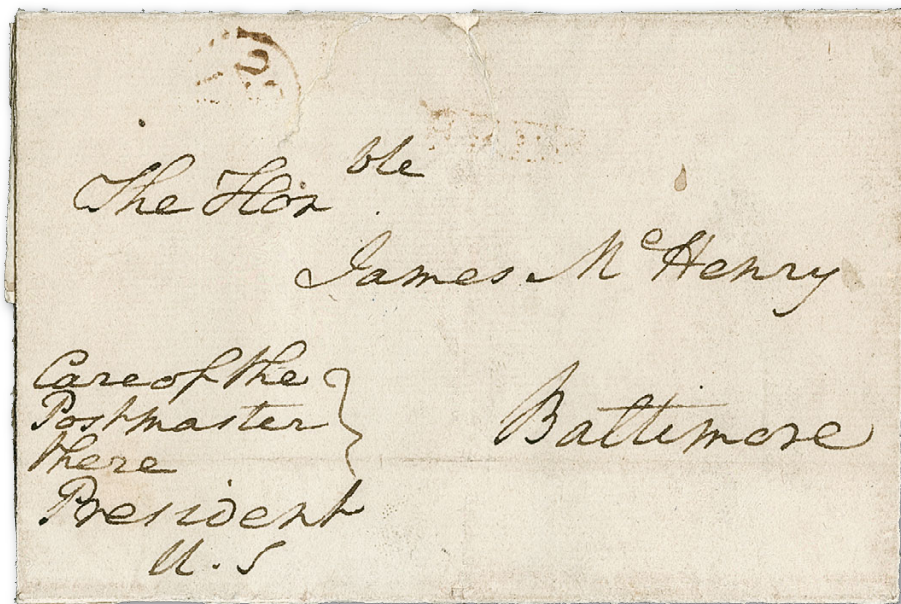 The Honble
James McHenry
Baltimore
Care of the
Postmaster
there
President
U.S